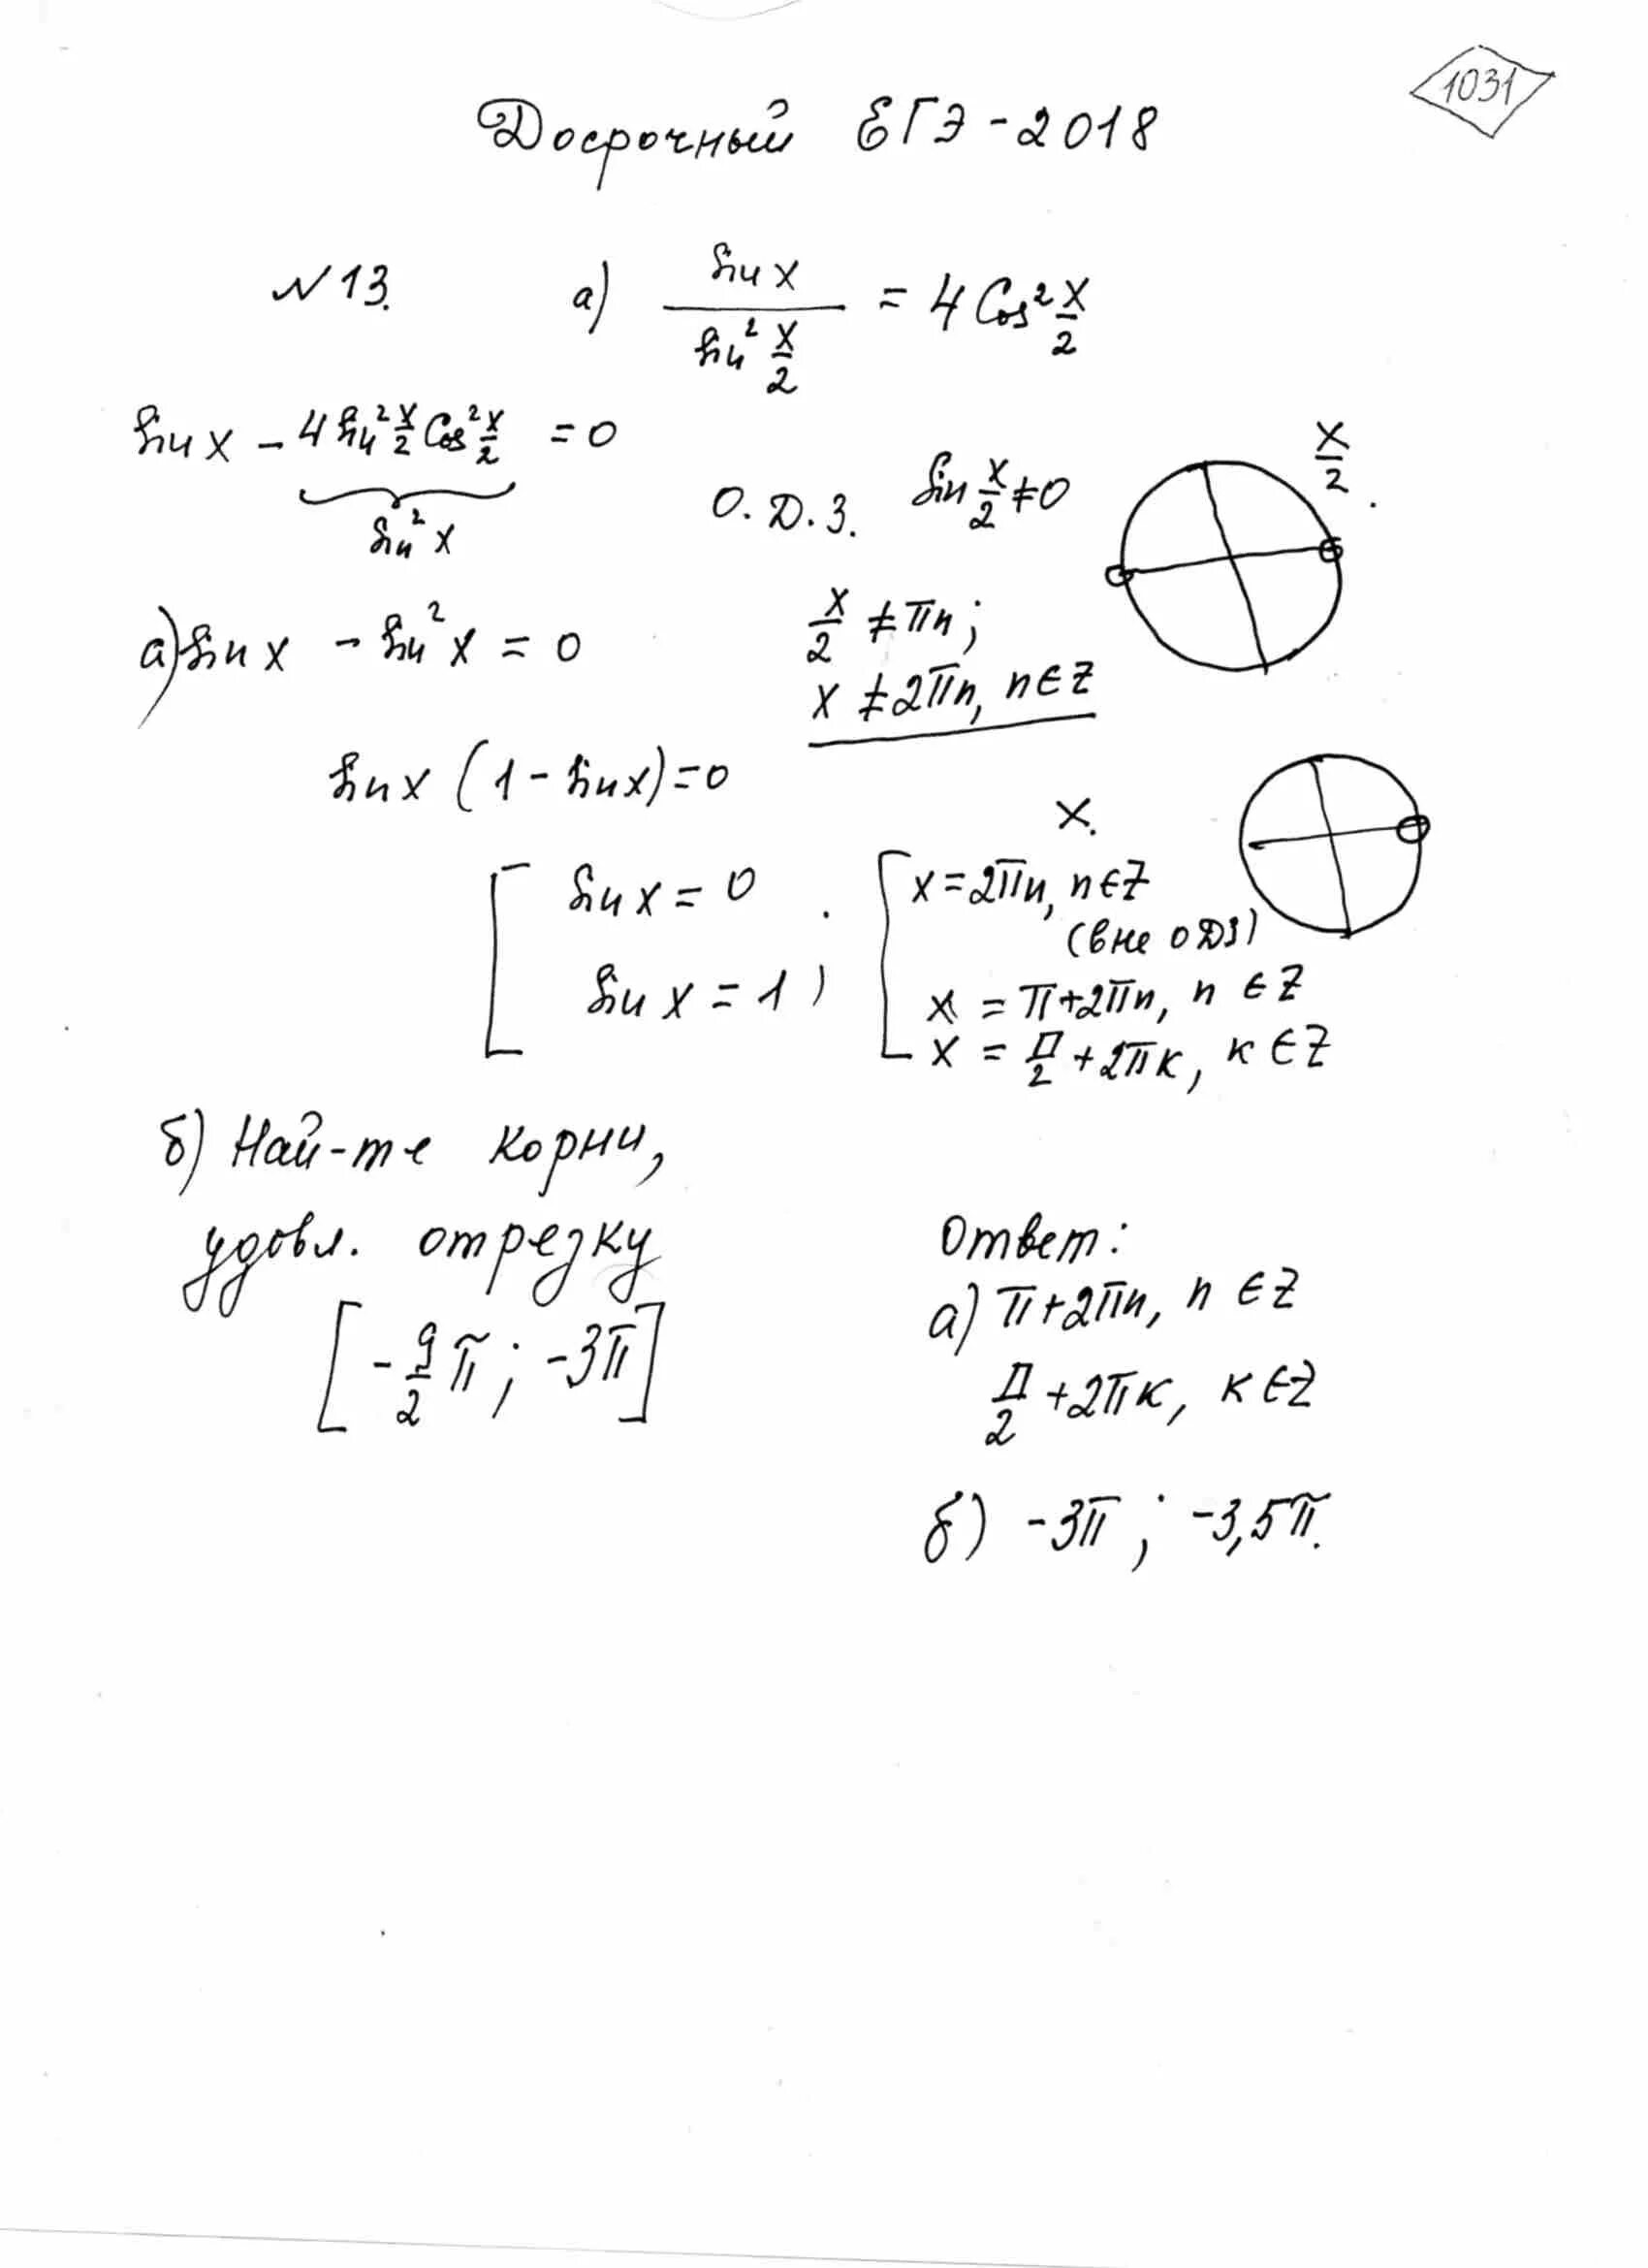 1031
Досрочный ЕГЭ-2018
№13. а) sin x / sin² x/2 = 4 Cos² x/2
sin x - 4 sin² x/2 Cos² x/2 = 0
sin² x
О.Д.З. sin x/2 ≠ 0
x/2
x/2 ≠ πn;
x ≠ 2πn, n ∈ Z
а) sin x - sin² x = 0
sin x (1 - sin x) = 0
x.
[ sin x = 0
sin x = 1 ;
[ x = 2πn, n ∈ Z
(вне ОДЗ)
x = π + 2πn, n ∈ Z
x = π/2 + 2πк, к ∈ Z
б) Най-те корни,
удовл. отрезку
[-9/2 π; -3π]
Ответ:
а) π + 2πn, n ∈ Z
π/2 + 2πк, к ∈ Z
б) -3π; -3,5π.